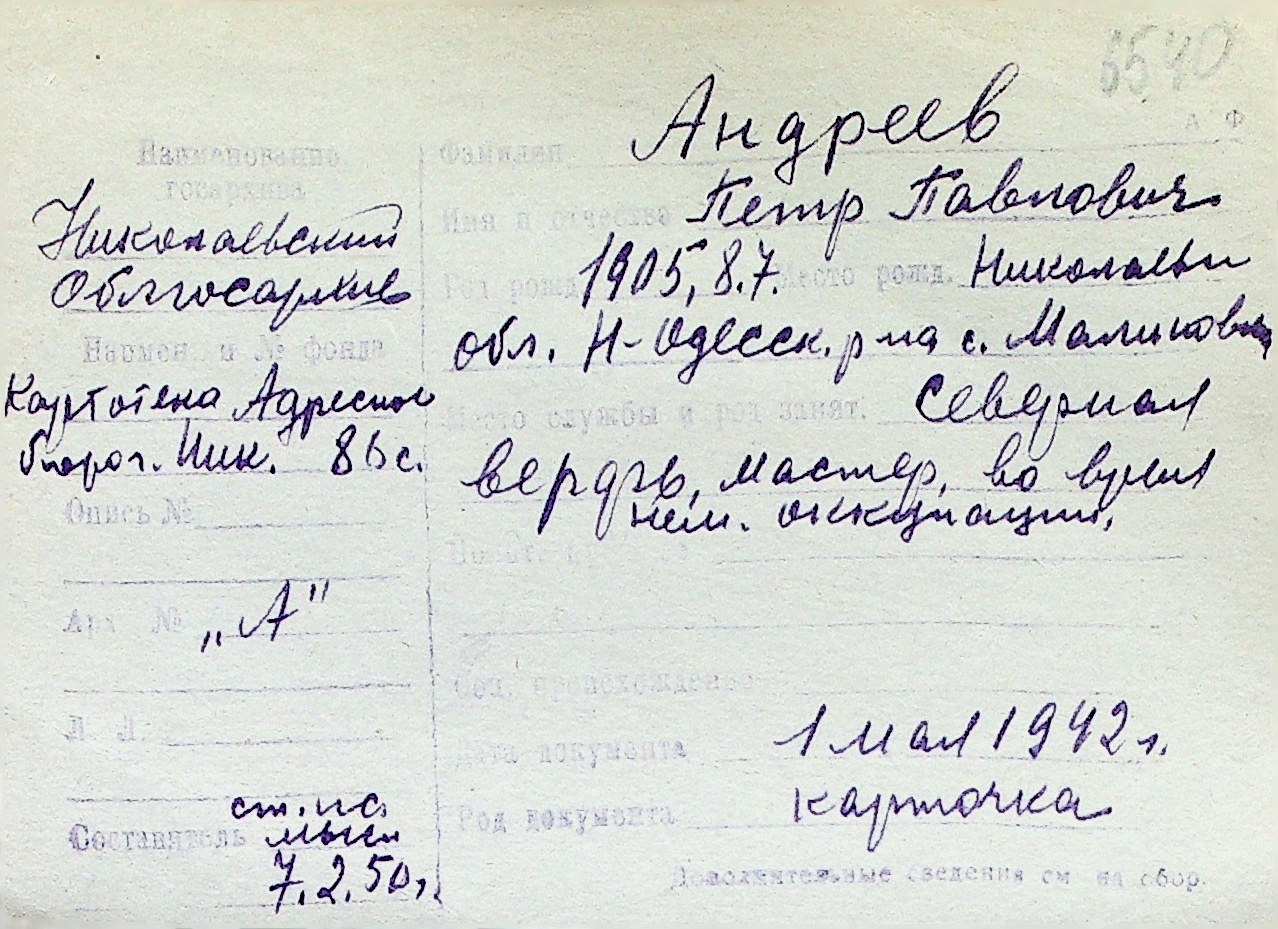 6540
А Ф
Наименование
госархива
Николаевский
Облгосархив
Наимен. и № фонда
Картотека Адресное
бюро г. Ник. 86 с.
Опись №
Арх №
„А"
Л. Л.
Составитель
ст. нс.
7.2.50 г.
Фамилия Андреев
Имя и отчество Петр Павлович
Год рожд. 1905, 8.7. Место рожд. Николаевск
обл. Н-Одесск. р-на с.
Место службы и род занят. Северная
верфь, мастер, во время
нем. оккупации,
Соц. происхождение
Дата документа 1 мая 1942 г.
Род документа карточка
Дополнительные сведения см на обор.